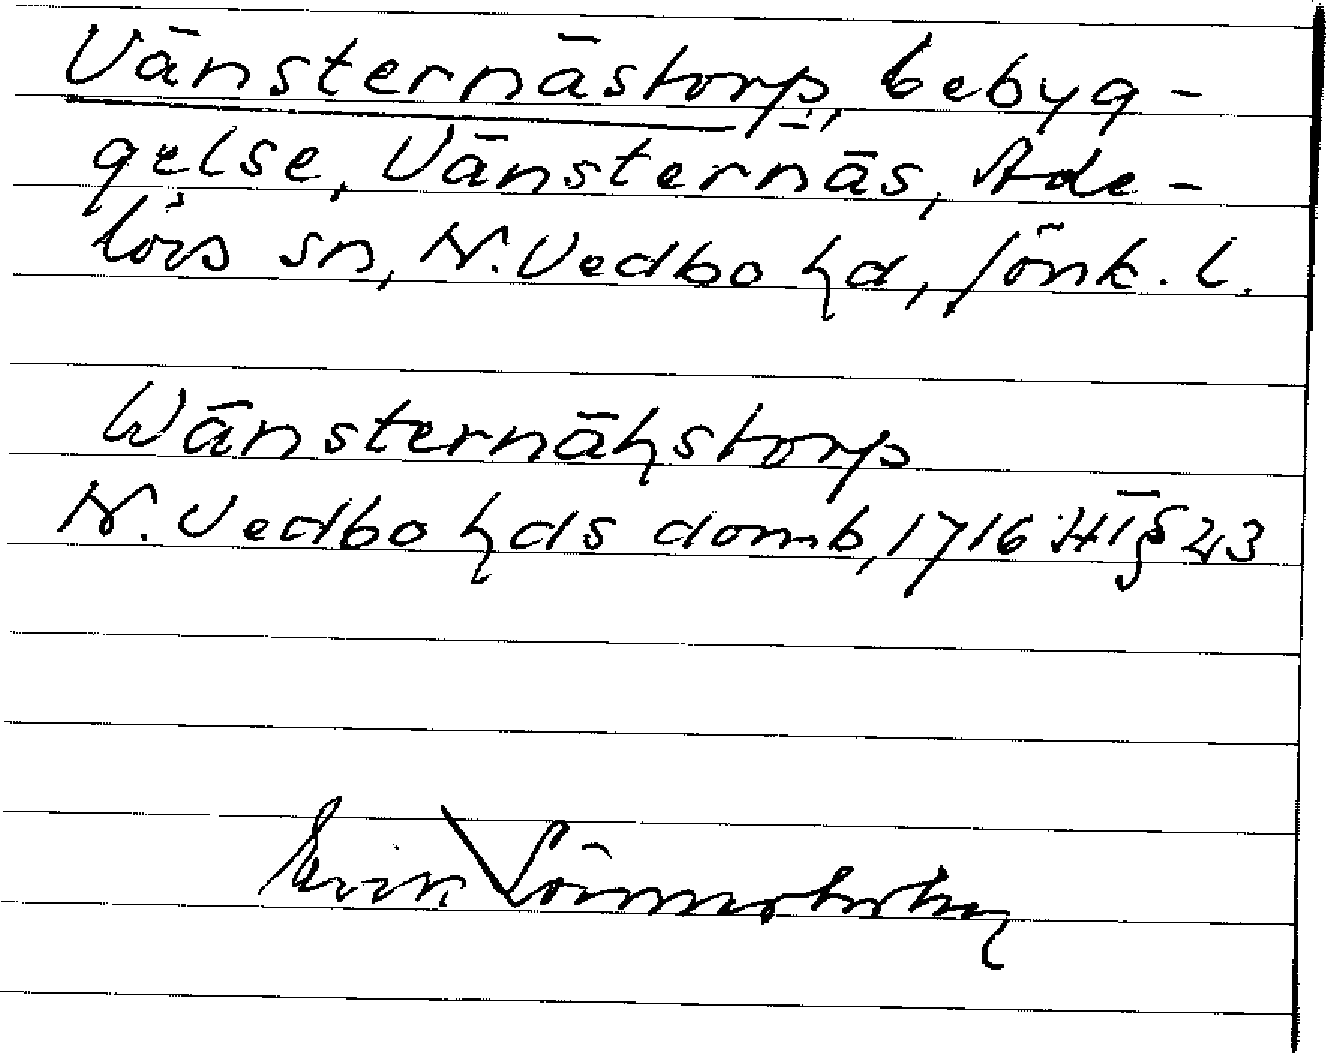 Vänsternästorp, bebyg-
gelse, Vänsternäs, Ade-
lövs sn, N. Vedbo hd, Jönk. l.
Wänsternähstorp
N. Vedbo hds domb, 1716 HT § 23
Erik